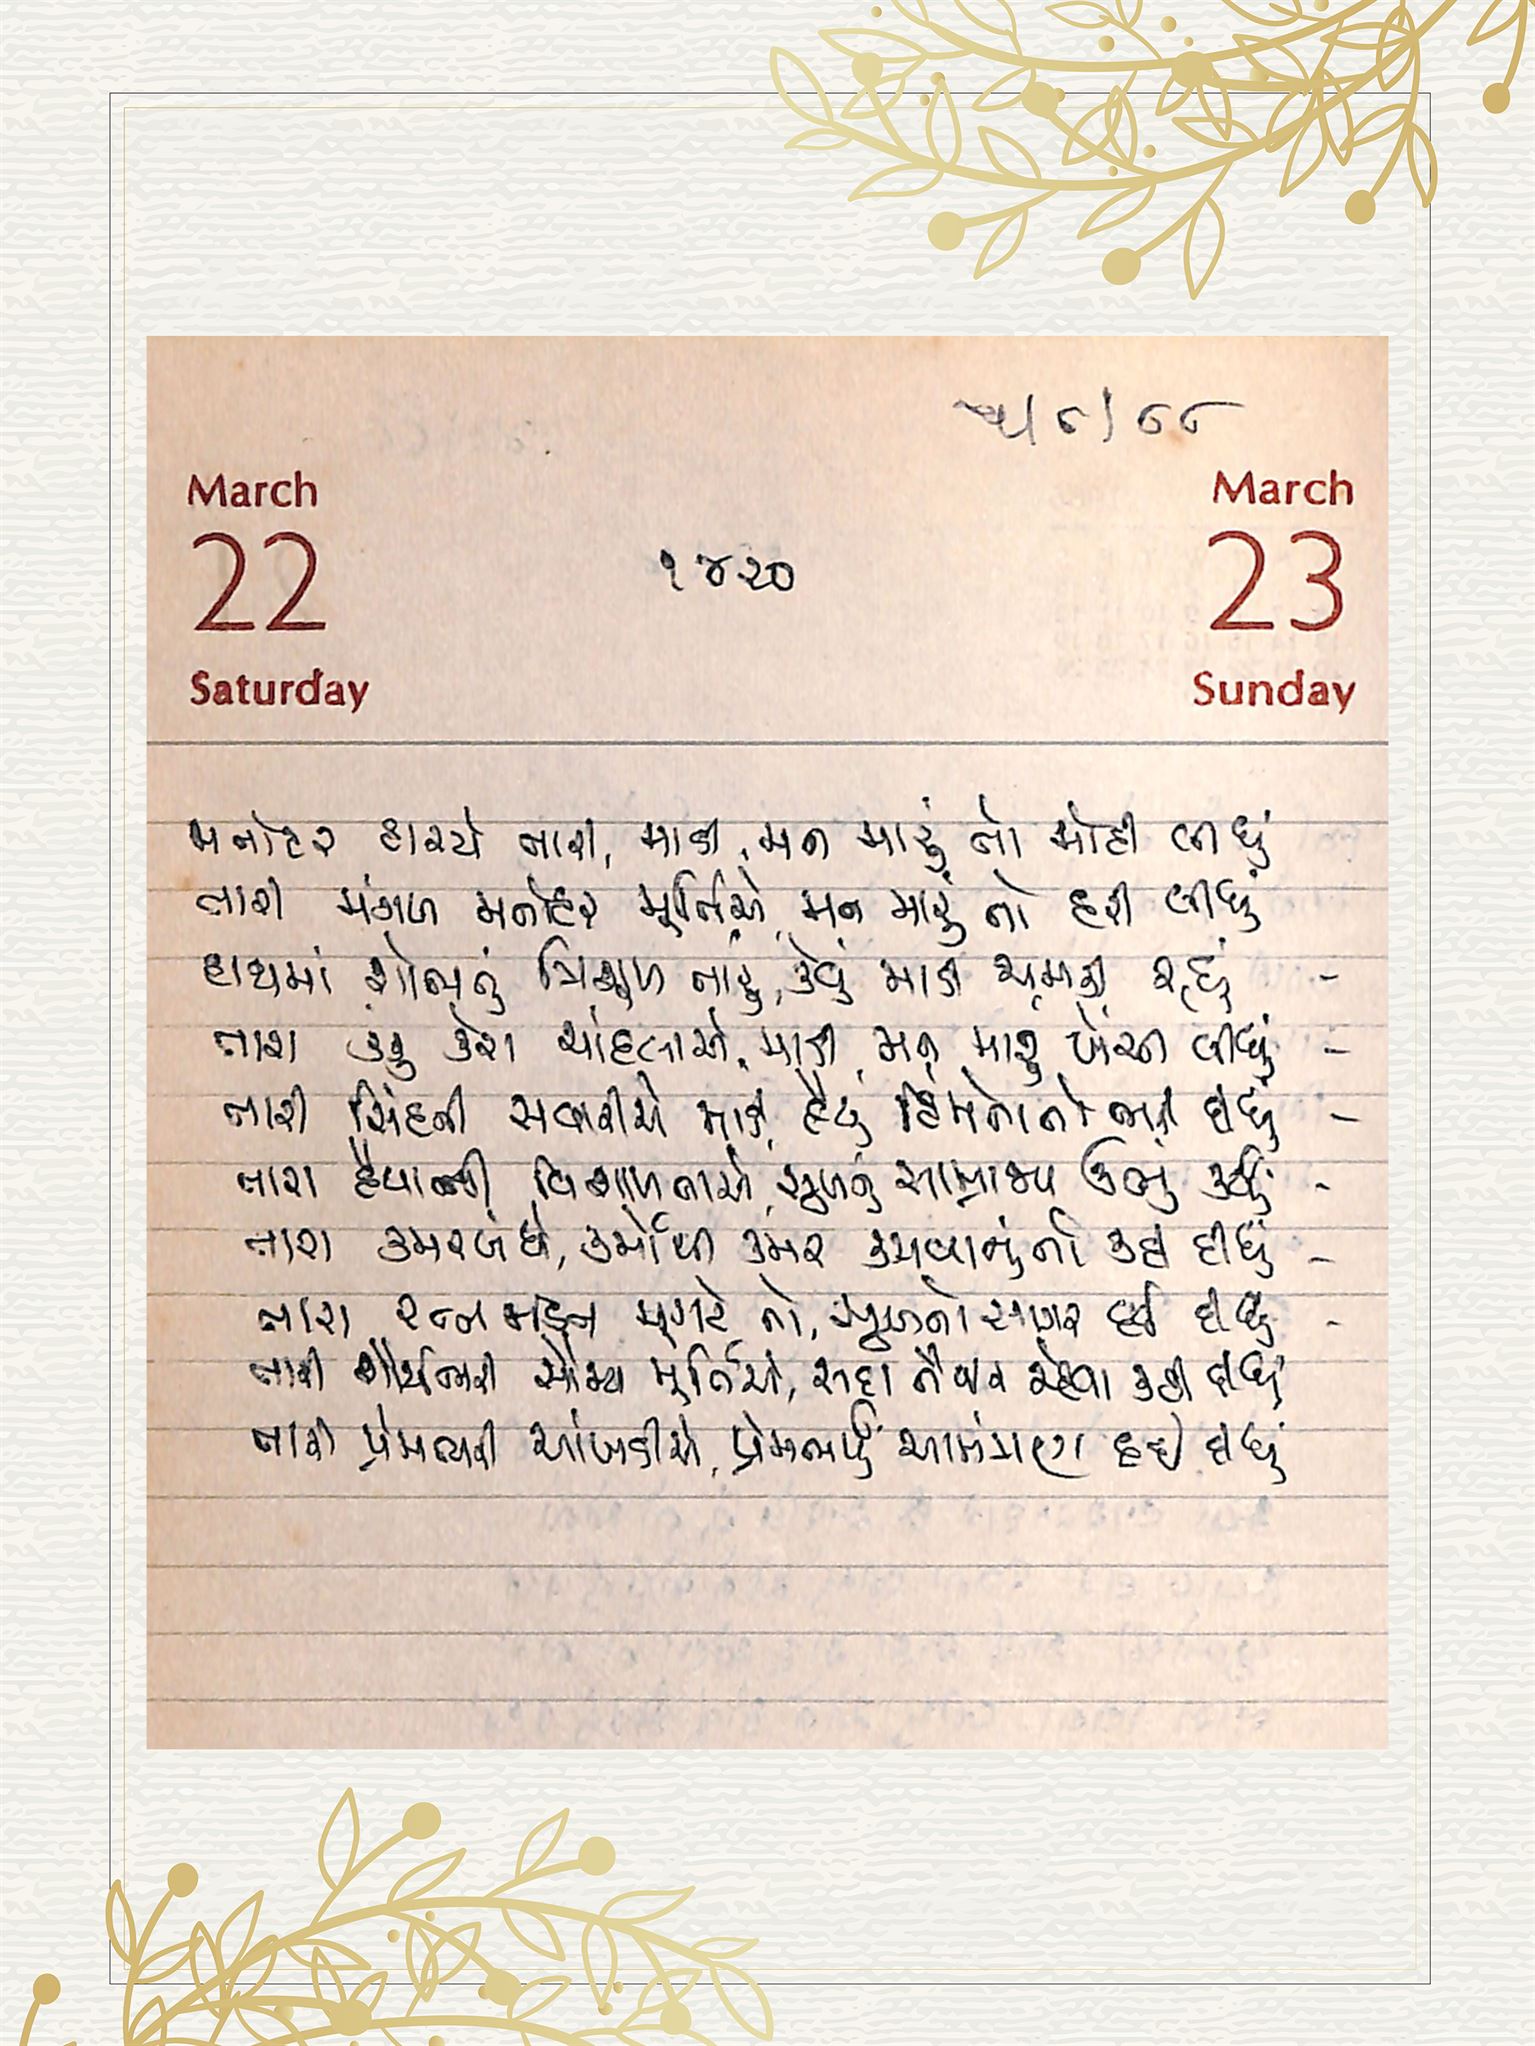 ૫/૮/૯૮
March
22
Saturday
૧૪૨૦
March
23
Sunday
મનોહર હાસ્યે તારી, માડી, મન મારું તો મોહી લીધું
તારી મંગળ મનોહર મૂર્તિએ, મન મારું તો હરી લીધું
હાથમાં શોભતું ત્રિશૂળ તારું, કેવું માડી ચમકી રહ્યું -
તારા કુંકુ કેરા ચાંદલાએ, માડી મન મારું ખેંચી લીધું -
તારી સિંહની સવારીએ માડી, હૈયું હિંમતે તો ભરી દીધું -
તારા હૈયાની વિશાળતાએ, સુખનું સામ્રાજ્ય ઊભું કર્યું -
તારા કમરબંધે, કર્મોથી કમર કસવાનું તો કહી દીધું -
તારા રત્ન જડિત મુગટે તો, સુખનો સાગર દઈ દીધું -
તારી શૌર્યભરી સૌમ્ય મૂર્તિએ, સદા તૈયાર રહેવા કહી દીધું
તારી પ્રેમભરી આંખડીએ, પ્રેમભર્યું આમંત્રણ દઈ દીધું